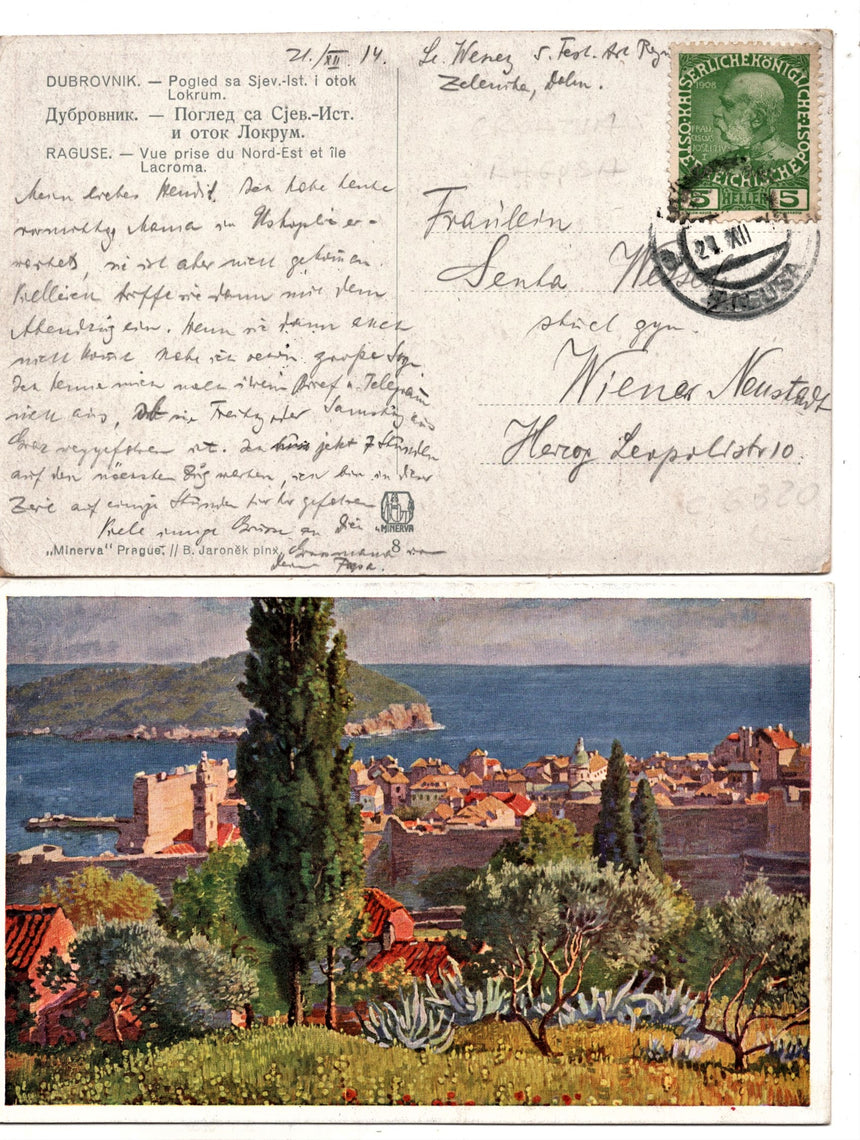 21./XII 14.
5. Fest. Art. Reg
Zelenika, Dalm.
DUBROVNIK. — Pogled sa Sjev.-Ist. i otok
Lokrum.
Дубровник. — Поглед са Сјев.-Ист.
и оток Локрум.
RAGUSE. — Vue prise du Nord-Est et île
Lacroma.
KAISERLICHE KÖNIGLICHE
1908
5 HELLER 5
21 XII
Mein liebes Ich habe heute
vormittag Mama in Uskoplje er-
wartet, sie ist aber nicht gekommen.
Vielleicht trifft sie dann mit dem
Abendzug ein. Wenn sie dann auch
nicht kommt habe ich große
Ich kenne mich nach ihrem Brief u. Telegram
nicht aus, ob sie Freitag oder Samstag aus
Graz weggefahren ist. Ich muss jetzt 7 Stunden
auf den nächsten Zug warten, ich bin in dieser
Zeit auf einige Stunden hierher gefahren
Viele innige Grüsse an Die
Grossmama von
Deinem Papa.
Fräulein
Senta
stud gym.
Wiener Neustadt
Herzog Leopoldstr 10.
MINERVA
8
„Minerva" Prague. // B. Jaroněk pinx.